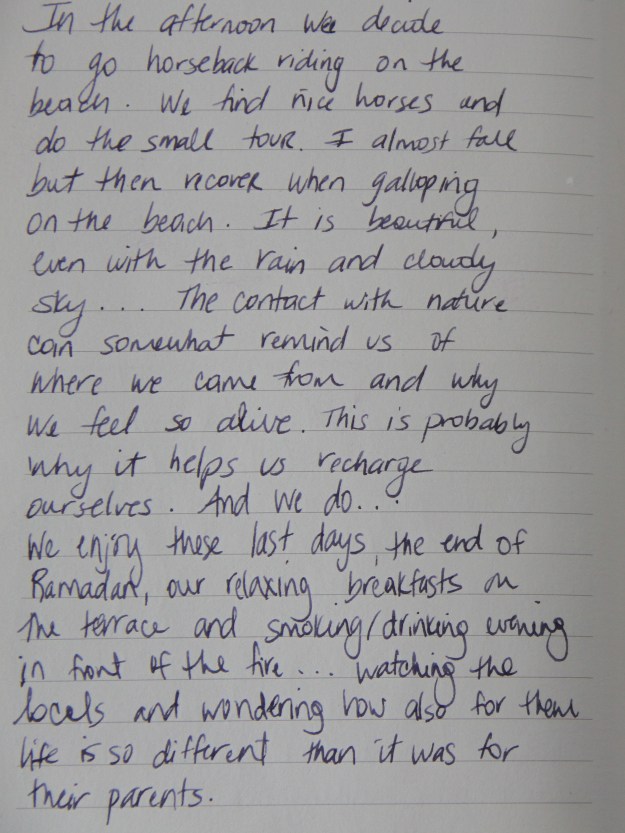 In the afternoon we decide
to go horseback riding on the
beach. We find nice horses and
do the small tour. I almost fall
but then recover when galloping
on the beach. It is beautiful,
even with the rain and cloudy
sky... The contact with nature
can somewhat remind us of
where we came from and why
we feel so alive. This is probably
why it helps us recharge
ourselves. And we do...
We enjoy these last days, the end of
Ramadan, our relaxing breakfasts on
the terrace and smoking/drinking evening
in front of the fire... watching the
locals and wondering how also for them
life is so different than it was for
their parents.